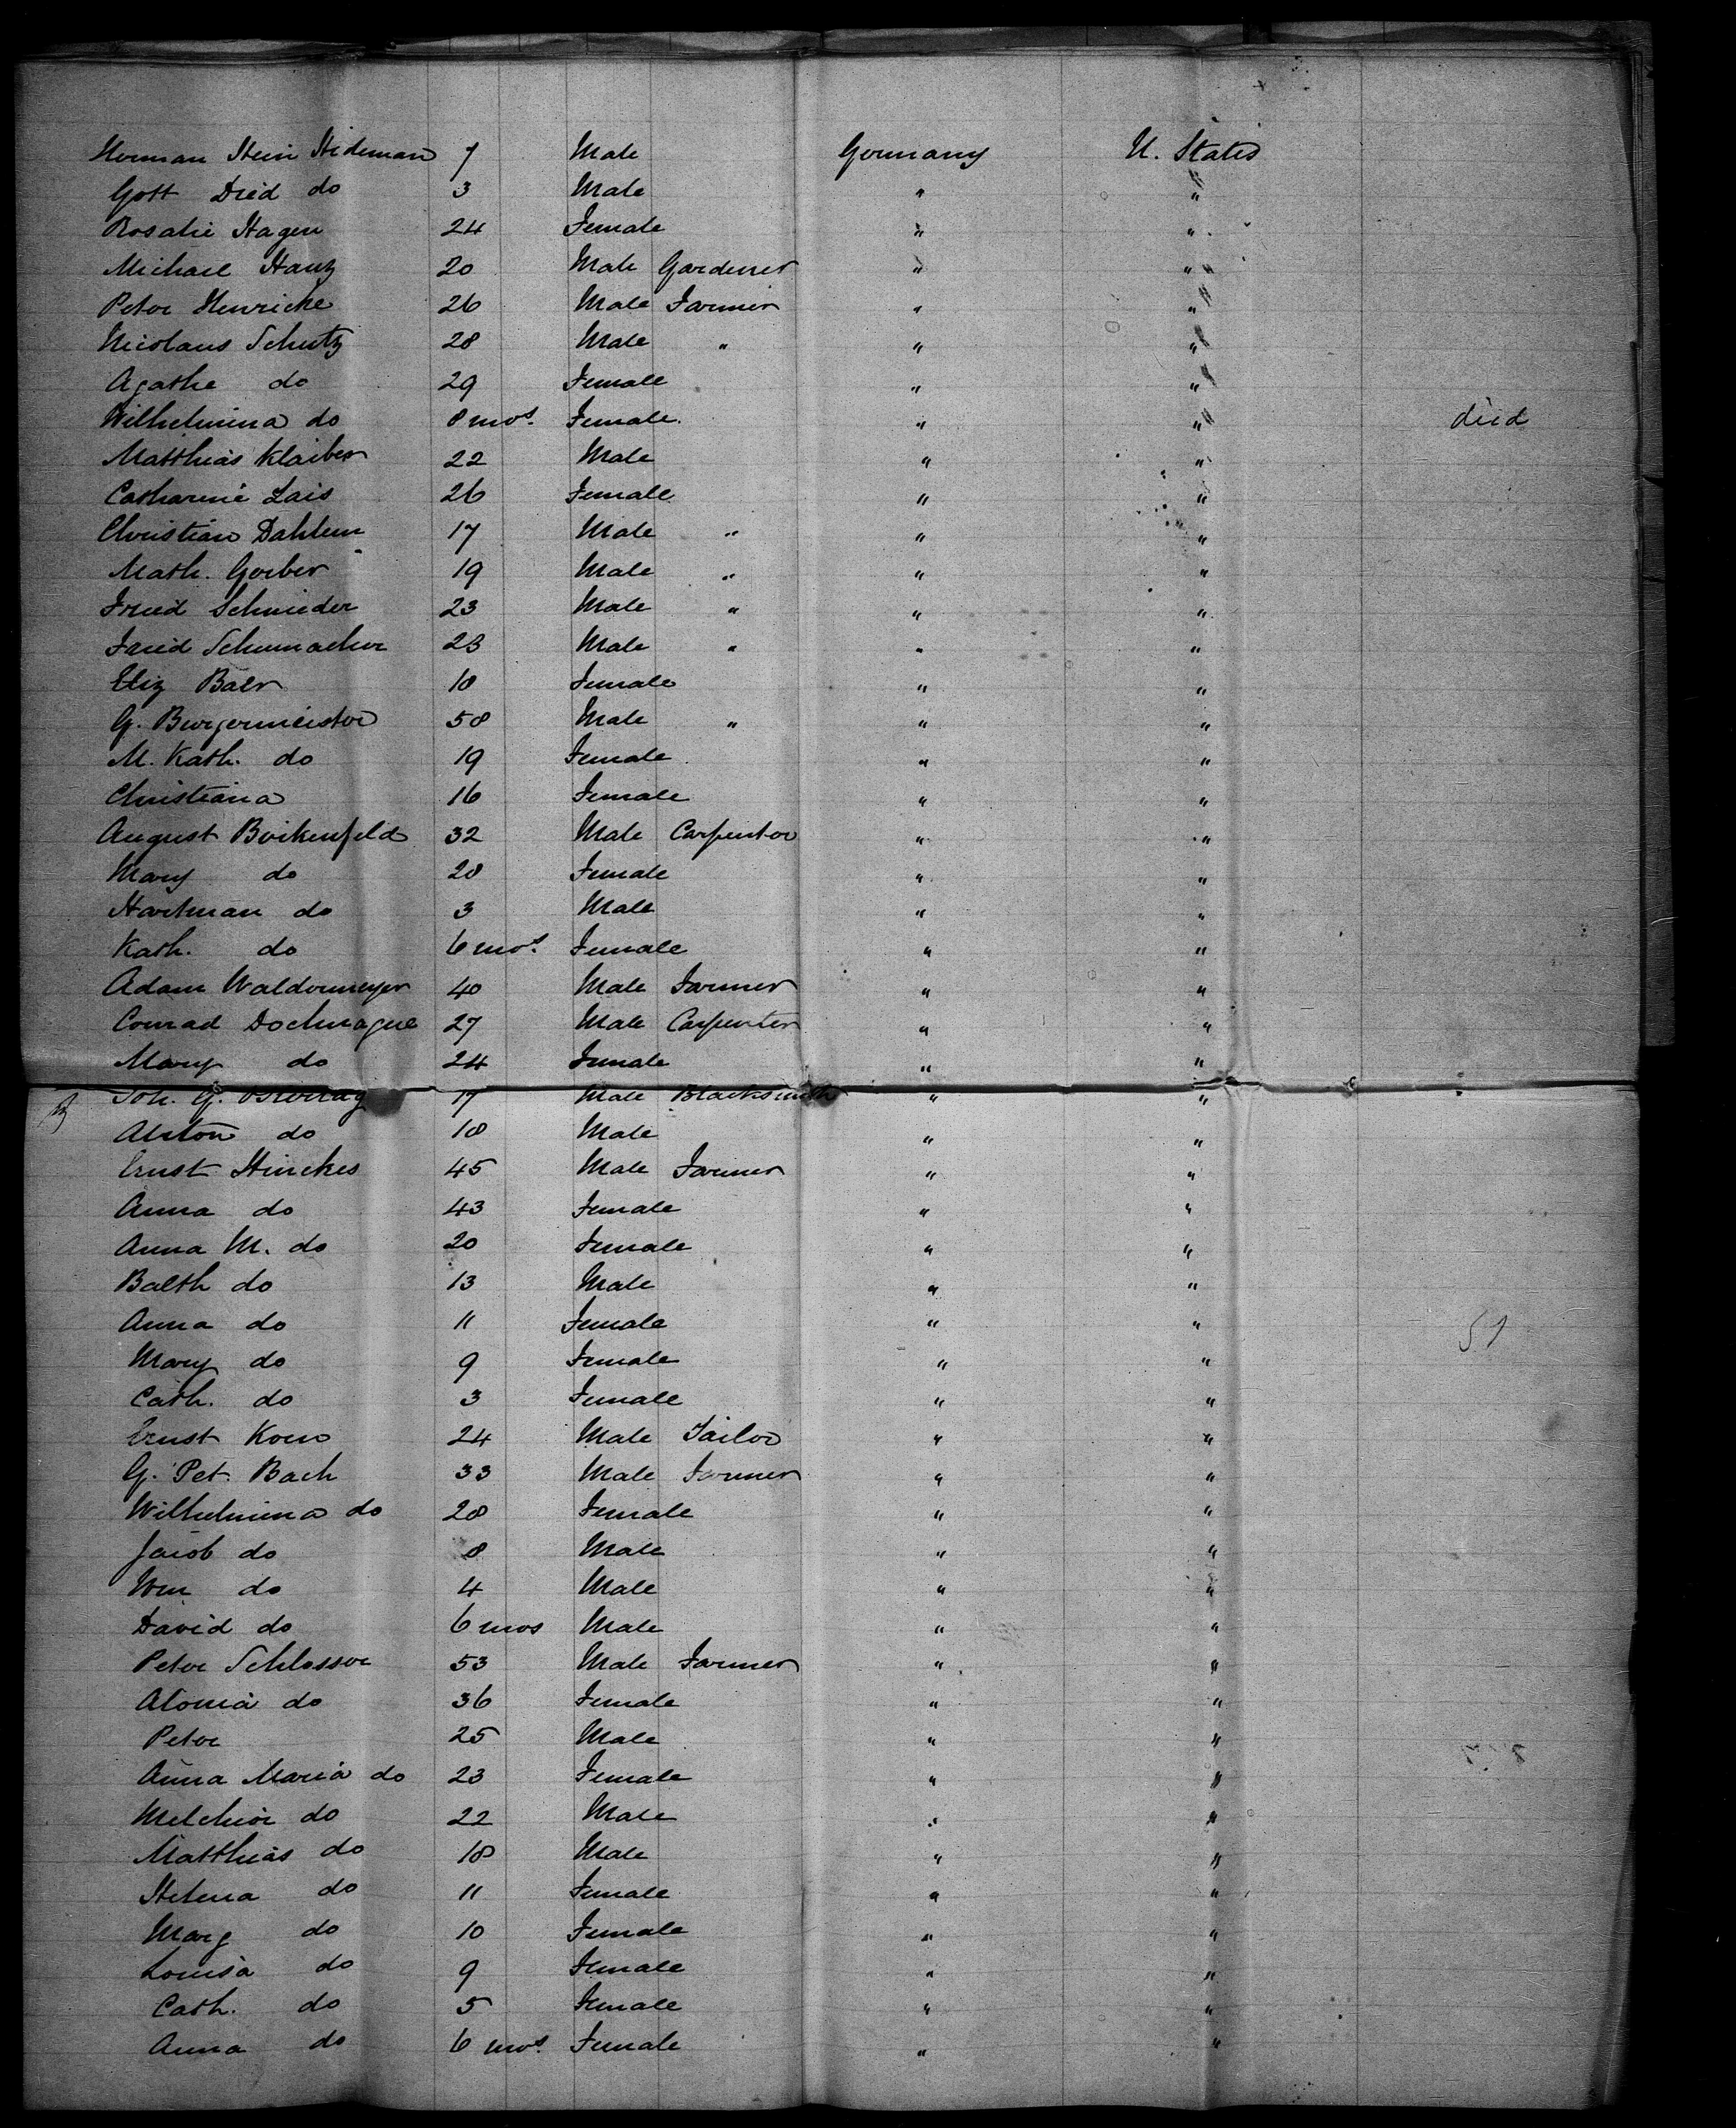 Herman Hein Hideman 7 Male Germany U. States
Gott Died do 3 Male " "
Rosalie Hagen 24 Female " "
Michael Hautz 20 Male Gardener " "
Peter Henricke 26 Male Farmer " "
Nicolaus Schutz 28 Male " " "
Agathe do 29 Female " "
Wilhelmina do 8 mos. Female " " died
Matthias Klaiber 22 Male " "
Catharine Lais 26 Female " "
Christian Dahlem 17 Male " " "
Math. Gerber 19 Male " " "
Fried Schnieder 23 Male " " "
Fried Schumacher 23 Male " " "
Eliz Baer 18 Female " "
G. Burgermeister 58 Male " " "
M. Kath. do 19 Female " "
Christiana 16 Female " "
August Boikenfeld 32 Male Carpenter " "
Mary do 28 Female " "
Hartman do 3 Male " "
Kath. do 6 mos. Female " "
Adam Waldermeyer 40 Male Farmer " "
Conrad Dochnague 27 Male Carpenter " "
Mary do 24 Female " "
Joh. G. 17 Male Blacksmith " "
do 18 Male " "
Ernst Hinckes 45 Male Farmer " "
Anna do 43 Female " "
Anna M. do 20 Female " "
Balth do 13 Male " "
Anna do 11 Female " "
51
Mary do 9 Female " "
Cath. do 3 Female " "
Ernst Korn 24 Male Tailor " "
G. Pet. Bach 33 Male Farmer " "
Wilhelmina do 28 Female " "
Jacob do 8 Male " "
Wm do 4 Male " "
David do 6 mos Male " "
Peter Schlosser 53 Male Farmer " "
Alonia do 36 Female " "
Peter 25 Male " "
Anna Maria do 23 Female " "
Melchior do 22 Male " "
Matthias do 18 Male " "
Helena do 11 Female " "
Marg do 10 Female " "
Louisa do 9 Female " "
Cath. do 5 Female " "
Anna do 6 mos. Female " "